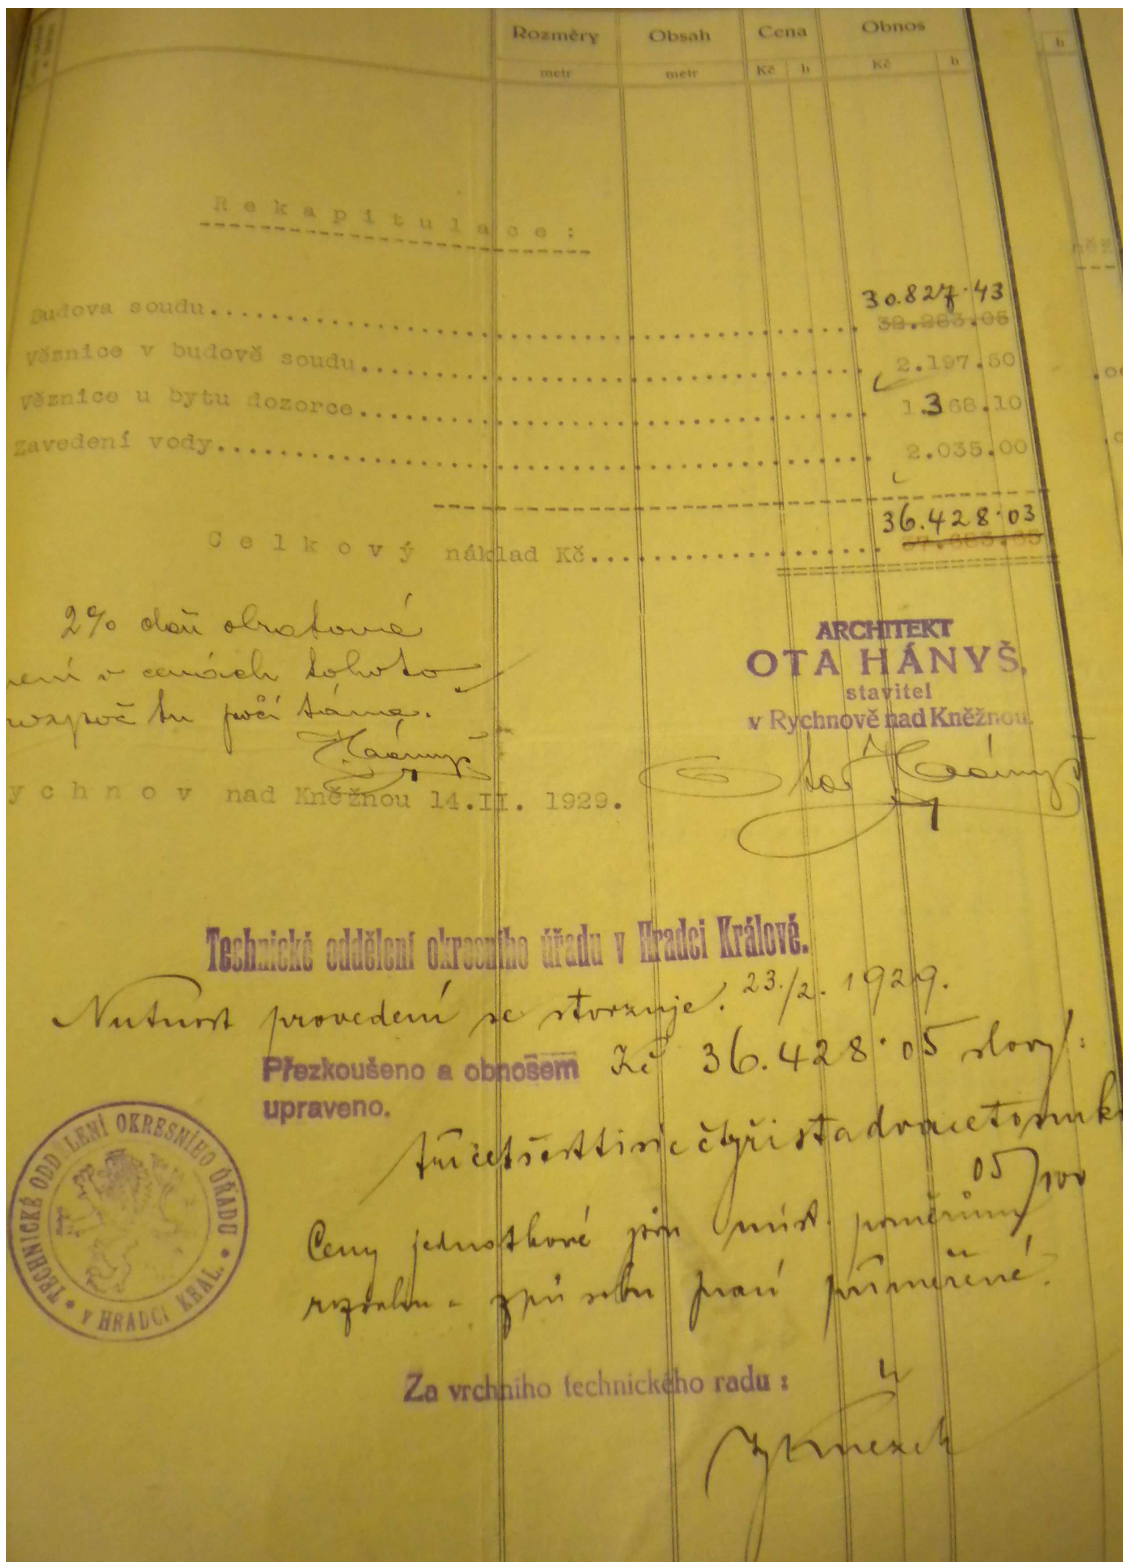 Rozměry Obsah Cena Obnos
metr metr Kč h Kč h
h
Rekapitulace:
30.827.43
Budova soudu
Věznice v budově soudu 2.197.50
Věznice u bytu dozorce 1.368.10
Zavedení vody 2.035.00
36.428.03
Celkový náklad Kč
2% daň obratová
v cenách tohoto
rozpočtu počítána.
Hányš
ychnov nad Kněžnou 14.II. 1929.
ARCHITEKT
OTA HÁNYŠ,
stavitel
v Rychnově nad Kněžnou.
Ota Hányš
Technické oddělení okresního úřadu v Hradci Králové.
Nutnost provedení se stvrzuje. 23./2. 1929.
Přezkoušeno a obnosem Kč 36.428.05 slovy:
upraveno.
třicetšesttisícčtyřistadvacetosmk
05/100
Ceny jednotkové jsou míst. poměrům
rozsahu a způsobu prací přiměřené.
TECHNICKÉ ODDĚLENÍ OKRESNÍHO ÚŘADU • V HRADCI KRÁL. •
Za vrchního technického radu: